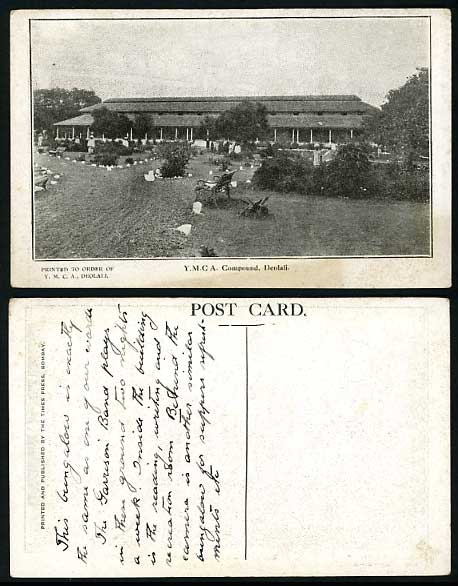 PRINTED TO ORDER OF
Y. M. C. A., DEOLALI.
Y.M.C A. Compound, Deolali.
POST CARD.
PRINTED AND PUBLISHED BY THE TIMES PRESS, BOMBAY.
This bungalow is exactly
the same as one of our wards
The Garrison Band plays
in these ground two nights
a week. Inside the building
is the reading, writing and
recreation room Behind the
camera is another similar
bungalow for suppers refresh-
ments etc